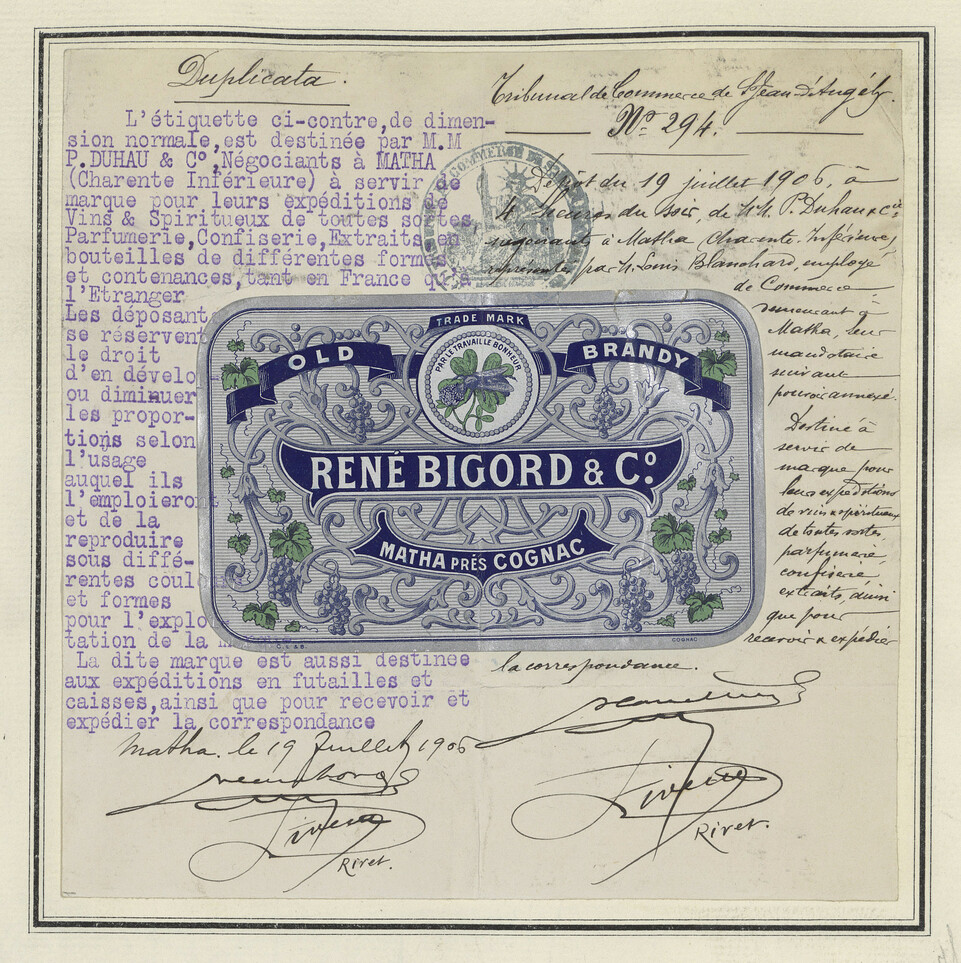 Duplicata.
L'étiquette ci-contre,de dimen-
sion normale,est destinée par M.M
P.DUHAU & C°,Négociants à MATHA
(Charente Inférieure) à servir de
marque pour leurs expéditions de
Vins & Spiritueux de toutes sortes
Parfumerie,Confiserie,Extraits en
bouteilles de différentes formes
et contenances,tant en France qu'à
l'Etranger
Les déposant
se réservent
le droit
d'en dévelo
ou diminuer
les propor-
tions selon
l'usage
auquel ils
l'emploieront
et de la
reproduire
sous diffé-
rentes coulo
et formes
pour l'explo
tation de la
La dite marque est aussi destinée
aux expéditions en futailles et
caisses,ainsi que pour recevoir et
expédier la correspondance
Matha. le 19 Juillet 1906
Rivet.
Tribunal de Commerce de St Jean d'Angély.
N° 294.
Dépôt du 19 juillet 1906, à
4 heures du soir, de MM. P. Duhau & Cie
négociant à Matha Charente-Inférieure,
représentés par M. Louis Blanchard, employé
de Commerce
demeurant à
Matha, leur
mandataire
suivant
pouvoir annexé.
Destiné à
servir de
marque pour
leurs expéditions
de vins & spiritueux
de toutes sortes,
parfumerie,
confiserie,
extraits, ainsi
que pour
recevoir & expédier
la correspondance.
Rivet.
TRADE MARK
PAR LE TRAVAIL LE BONHEUR
OLD BRANDY
RENÉ BIGORD & C°.
MATHA PRÈS COGNAC
COGNAC